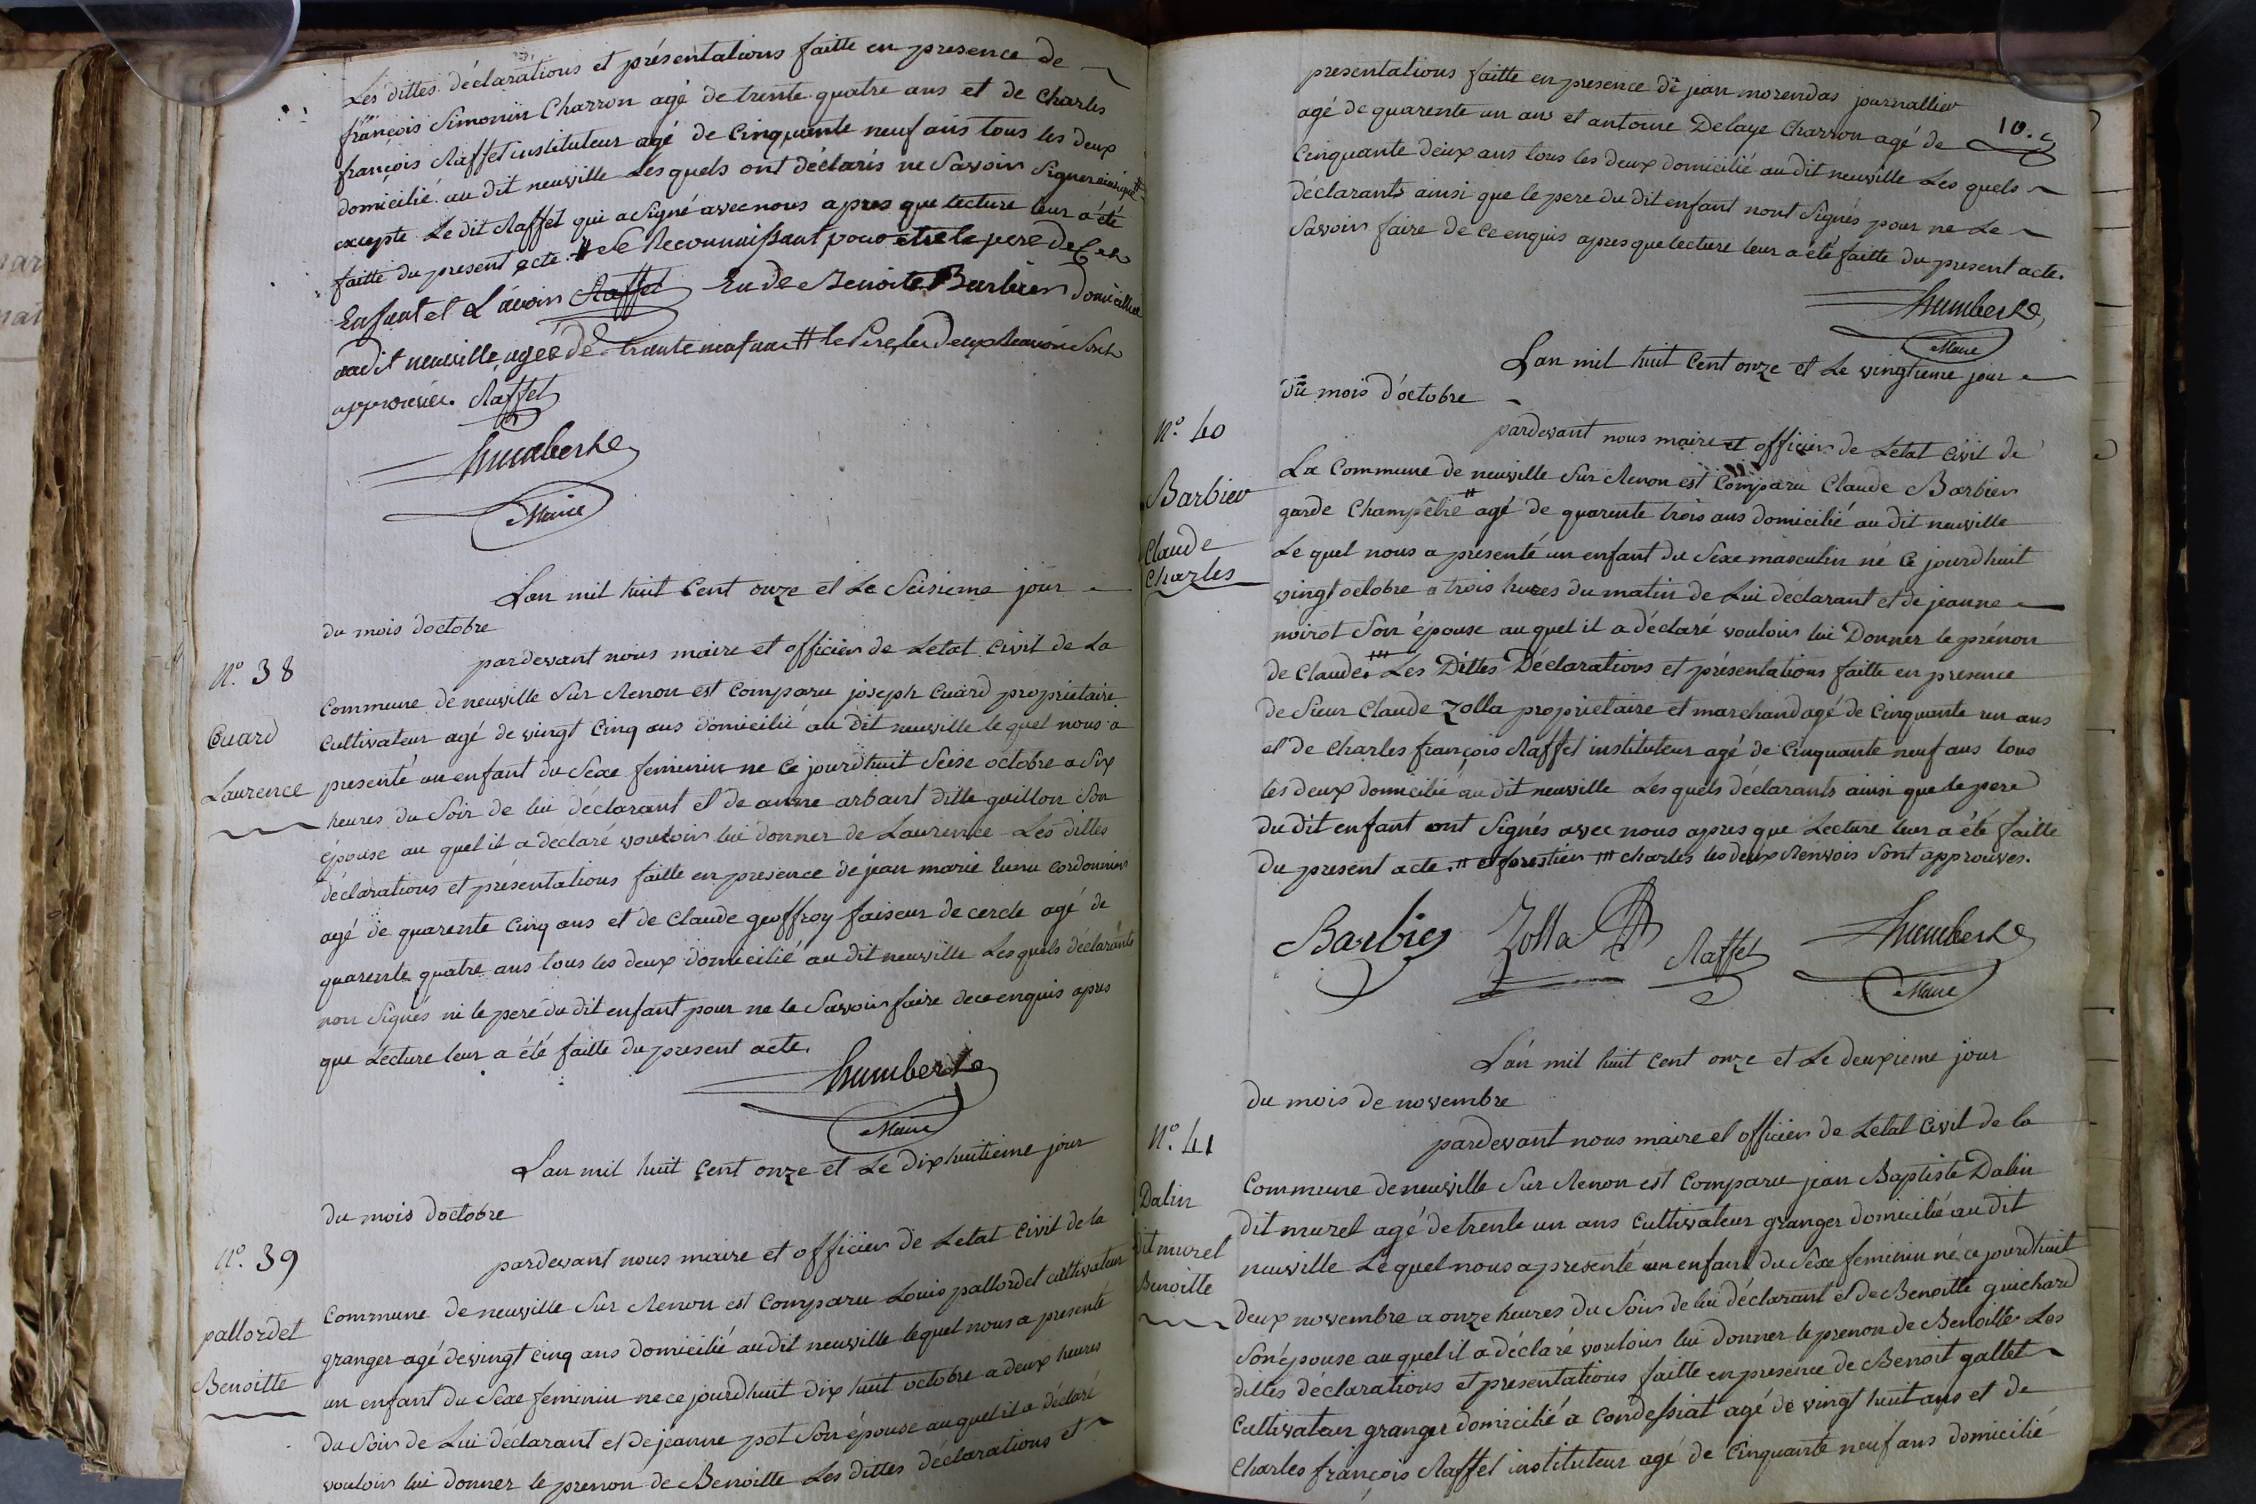 Les dittes déclarations et présentations faitte en presence de
françois Simonin Charron agé de trente quatre ans et de Charles
françois Raffet instituteur agé de Cinquante neuf ans tous les deux
domicilié au dit neuville Les quels ont déclarés ne Savoir Signer
excepte Le dit Raffet qui a Signé avec nous apres que lecture leur a été
faitte du present acte. # Se Reconnaissant pour etre le pere de
Enfant et L'avoir Raffet Eu de Benoite Barbier domicilliée
audit neuville agée de trante neuf ans # le Pere, les Deux Renvois Sont
approuvés. Raffet
humberte
Maire
Lan mil huit Cent onze et Le Seisieme jour
du mois doctobre
N.º 38
pardevant nous maire et officier de Letat Civil de La
Commune de neuville Sur Renon est Comparu joseph Cuard proprietaire
Cuard
Cultivateur agé de vingt Cinq ans domicilié au dit neuville le quel nous a
Laurence
presenté un enfant du Sexe feminin ne Ce jourdhuit Seise octobre a Six
heures du Soir de lui déclarant et de anne arbant ditte guillon Son
épouse au quel il a declaré vouloir lui donner de Laurence Les dittes
déclarations et présentations faitte en presence de jean marie cordonnier
agé de quarente Cinq ans et de Claude geoffroy faiseur de cercle agé de
quarente quatre ans tous les deux domicilié au dit neuville Les quels déclarants
non Signés ni le pere du dit enfant pour ne le Savoir faire de ce enquis apres
que Lecture leur a été faitte du present acte.
humberte
Maire
Lan mil huit Cent onze et Le dix huitieme jour
du mois doctobre
N.º 39
pardevant nous maire et officier de Letat Civil de la
Commune de neuville Sur Renon est Comparu Louis pallordet cultivateur
pallordet
granger agé de vingt Cinq ans domicilié au dit neuville lequel nous a presenté
Benoitte
un enfant du Sexe feminin ne ce jourdhuit dix huit octobre a deux heures
du Soir de Lui déclarant et de jeanne pot Son épouse au quel il a déclaré
vouloir lui donner le prenon de Benoitte Les dittes déclarations et
10.
presentations faitte en presence de jean morendas journallier
agé de quarente un ans et antoine Delaye Charron agé de
Cinquante deux ans tous les deux domicilié au dit neuville Les quels
déclarants ainsi que le pere du dit enfant nont Signés pour ne Le
Savoir faire de Ce enquis apres que lecture leur a été faitte du present acte.
humberte
Maire
Lan mil huit Cent onze et Le vingtieme jour
du mois d'octobre
N.º 40
pardevant nous maire et officier de Letat Civil de
La Commune de neuville Sur Renon est Comparu Claude Barbier
Barbier
garde Champêtre # agé de quarente trois ans domicilié au dit neuville
Claude
Charles
Le quel nous a présenté un enfant du Sexe masculin né Ce jourdhuit
vingt octobre a trois hures du matin de Lui déclarant et de jeanne
noirot Son épouse au quel il a déclaré vouloir lui Donner le prénon
de Claude. ### Les Dittes Déclarations et présentations faitte en presence
de Sieur Claude Zolla proprietaire et marchand agé de Cinquante un ans
et de Charles françois Raffet instituteur agé de Cinquante neuf ans tous
les deux domicilié au dit neuville Les quels déclarants ainsi que le pere
du dit enfant ont Signés avec nous apres que Lecture leur a été faitte
du present acte. # et forestier ### charles les deux Renvois Sont approuvés.
Barbier Zolla Raffet humberte
Maire
Lan mil huit Cent onze et Le deuxieme jour
du mois de novembre
N.º 41
pardevant nous maire et officier de Letat Civil de la
Commune de neuville Sur Renon est Comparu jean Baptiste Dalin
Dalin
dit murel agé de trente un ans Cultivateur granger domicilié au dit
dit murel
neuville Le quel nous a presenté un enfant du Sexe feminin né ce jourdhuit
Benoitte
deux novembre a onze heures du Soir de lui déclarant et de Benoitte guichard
Son épouse au quel il a déclaré vouloir lui donner le prenon de Benoitte Les
dittes déclarations et presentations faitte en presence de Benoit gallet
Cultivateur granger domicilié a Condessiat agé de vingt huit ans et de
Charles françois Raffet instituteur agé de Cinquante neuf ans domicilié